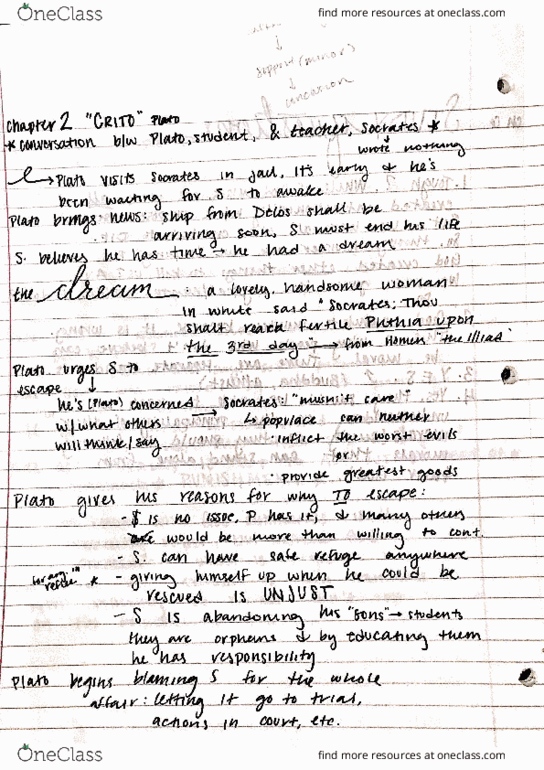 OneClass find more resources at oneclass.com
support (minor)
Chapter 2 "CRITO" Plato
* conversation b/w Plato, student, & teacher, Socrates *
wrote nothing
→ Plato visits Socrates in jail, it's early & he's
been waiting for S to awake
Plato brings news: ship from Delos shall be
arriving soon, S must end his life
S. believes he has time → he had a dream
the dream : a lovely, handsome woman
in white said "Socrates; Thou
shalt reach fertile Phthia upon
the 3rd day" → from Homer "the Illiad"
Plato urges S to
escape ↓
he's (Plato) concerned → Socrates: "mustn't care"
w/ what others ↳ populace can neither
will think/say · inflict the worst evils
or
· provide greatest goods
Plato gives his reasons for why TO escape:
- $ is no issue, P has it, & many others
would be more than willing to cont.
- S. can have safe refuge anywhere
* - giving himself up when he could be
rescued is UNJUST
- S is abandoning his "sons" → students
they are orphens & by educating them
he has responsibility
Plato begins blaming S for the whole
affair: letting it go to trial,
actions in court, etc.
OneClass find more resources at oneclass.com